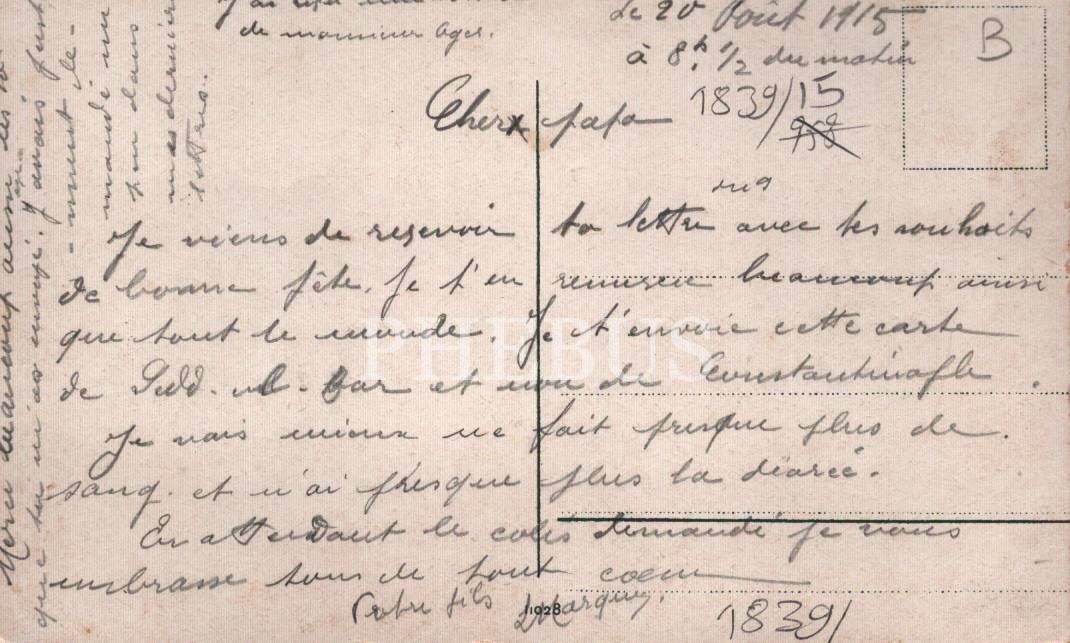 de monsieur
Le 20 Août 1915
à 8h 1/2 du matin
B
1839/15
958
Cher papa
Je viens de resevoir ta lettre avec tes souhaits
de bonne fête. Je t'en remersie beaucoup ainsi
que tout le monde. Je t'envoie cette carte
de Sedd-ul-Bar et non de Constantinople.
Je vais mieux ne fait presque plus de
sang. et n'ai presque plus la diareé.
En attendant le colis demandé je vous
embrasse tous de tout coeur
Votre fils
1928
1839/
PHEBUS
Merci beaucoup aussi
que tu m'as envoyé. J'avais just
-ment de-
mandé un
peu dans
mes dernière
lettres.